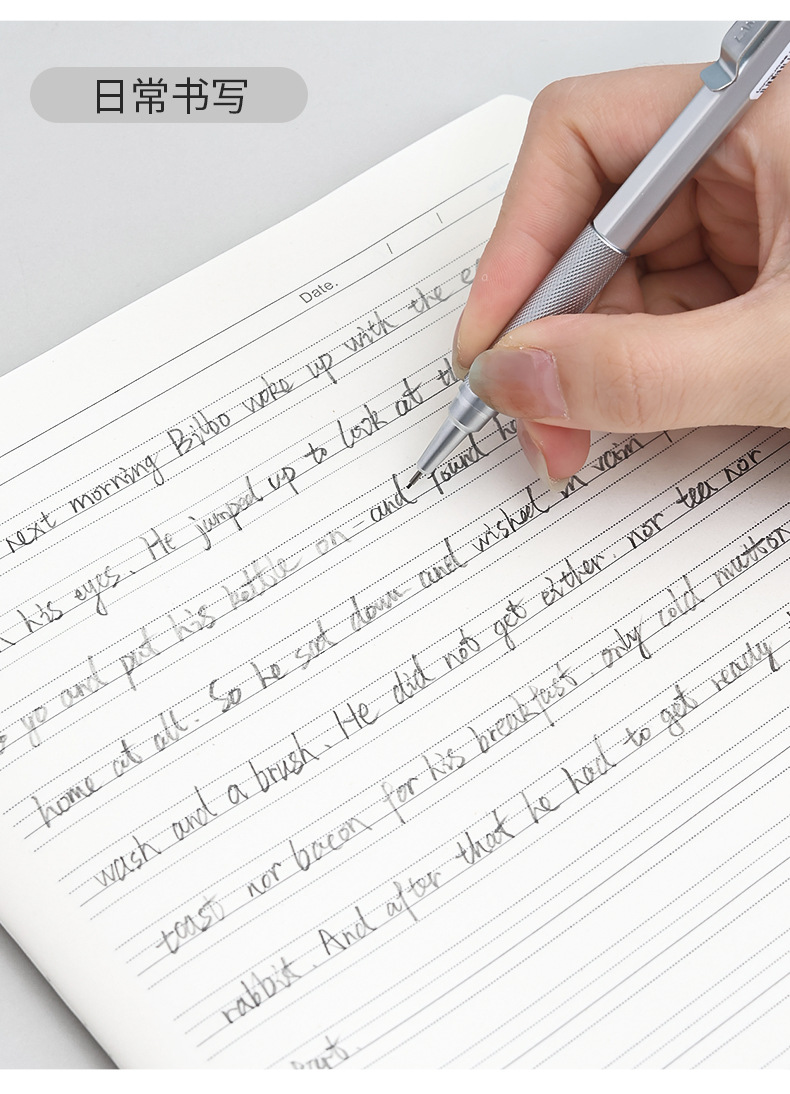 日常书写
Date.
next morning Bilbo woke up with the
his eyes. He jumped up to look at
go and put his kettle on and found
home at all. So he sat down and wished in vain
wash and a brush. He did not get either. nor tea nor
toast nor bacon for his breakfast. only cold mutton
rabbit. And after that he had to get ready